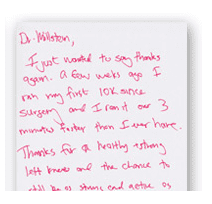 Dr. Millstein,
I just wanted to say thanks
again. A few weeks ago I
ran my first 10K since
surgery and I ran it over 3
minutes faster than I ever have.
Thanks for a healthy
left knee and the chance to
still be as strong and active as